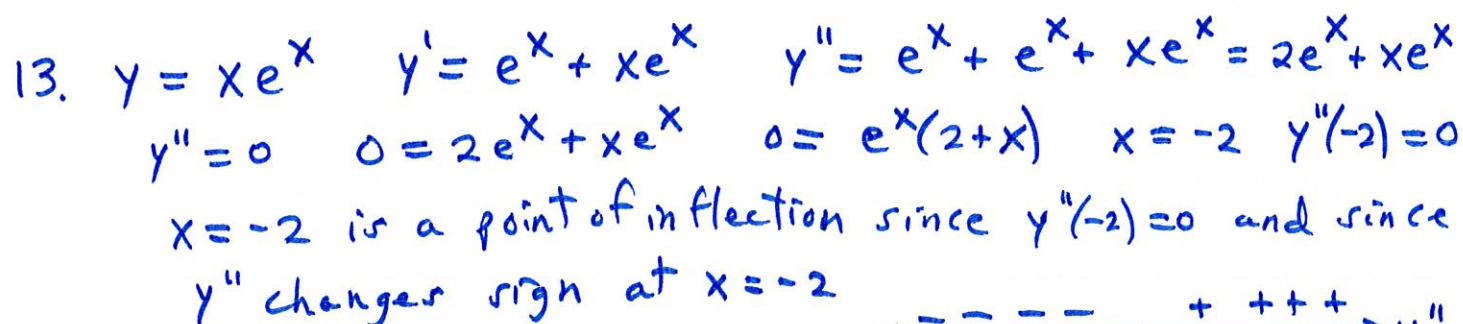 13. y = xeˣ y' = eˣ + xeˣ y" = eˣ + eˣ + xeˣ = 2eˣ + xeˣ
y" = 0 0 = 2eˣ + xeˣ 0 = eˣ(2+x) x = -2 y"(-2) = 0
x = -2 is a point of inflection since y"(-2) = 0 and since
y" changes sign at x = -2
- - - - + + + +